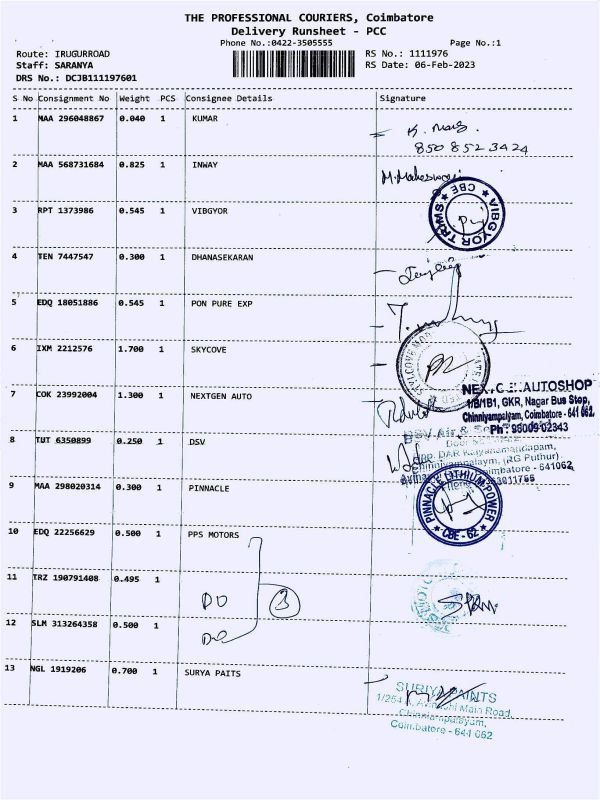 THE PROFESSIONAL COURIERS, Coimbatore
Delivery Runsheet - PCC
Phone No.:0422-3505555 Page No.:1
Route: IRUGURROAD RS No.: 1111976
Staff: SARANYA RS Date: 06-Feb-2023
DRS No.: DCJB111197601
S No Consignment No Weight PCS Consignee Details Signature
1 MAA 296048867 0.040 1 KUMAR
8508523424
2 MAA 568731684 0.825 1 INWAY M.Maheswari
3 RPT 1373986 0.545 1 VIBGYOR
VIBGYOR CBE
4 TEN 7447547 0.300 1 DHANASEKARAN
5 EDQ 18051886 0.545 1 PON PURE EXP
6 IXM 2212576 1.700 1 SKYCOVE
7 COK 23992004 1.300 1 NEXTGEN AUTO
AUTOSHOP
1/B/1B1, GKR, Nagar Bus Stop,
Chinniyampalyam, Coimbatore - 641 062.
Ph : 9600902343
8 TUT 6350899 0.250 1 DSV
DSV Air &
Kalyanamandapam,
Chinniyampalaym, (RG Puthur)
Coimbatore - 641062
9 MAA 298020314 0.300 1 PINNACLE
PINNACLE LITHIUM POWER
CBE - 62
10 EDQ 22256629 0.500 1 PPS MOTORS
11 TRZ 190791408 0.495 1 DO 3
12 SLM 313264358 0.500 1 Do
13 NGL 1919206 0.700 1 SURYA PAITS
SURIYA PAINTS
Main Road,
Chinniampalayam,
Coimbatore - 641 062